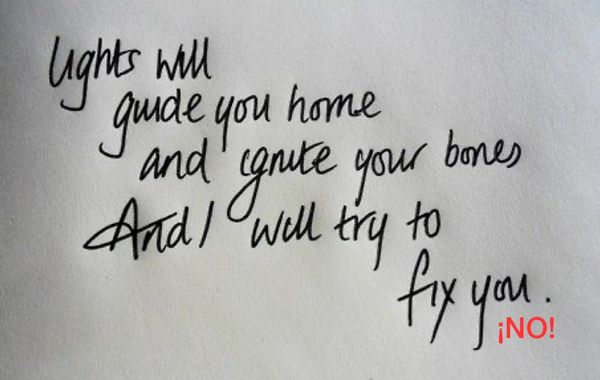 Lights will
guide you home
and ignite your bones
And I will try to
fix you.
¡NO!